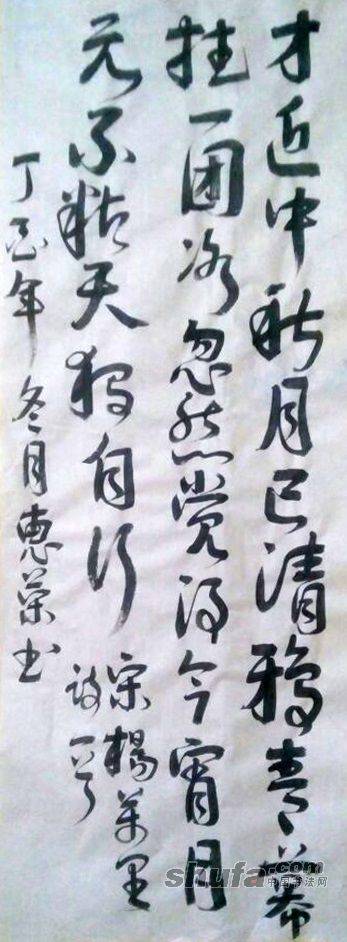 才近中秋月已清鸦青幕
挂一团冰忽然觉得今宵月
元不粘天独自行
宋杨万里
诗一首
丁 年冬月惠荣书
shufa.com
中国书法网